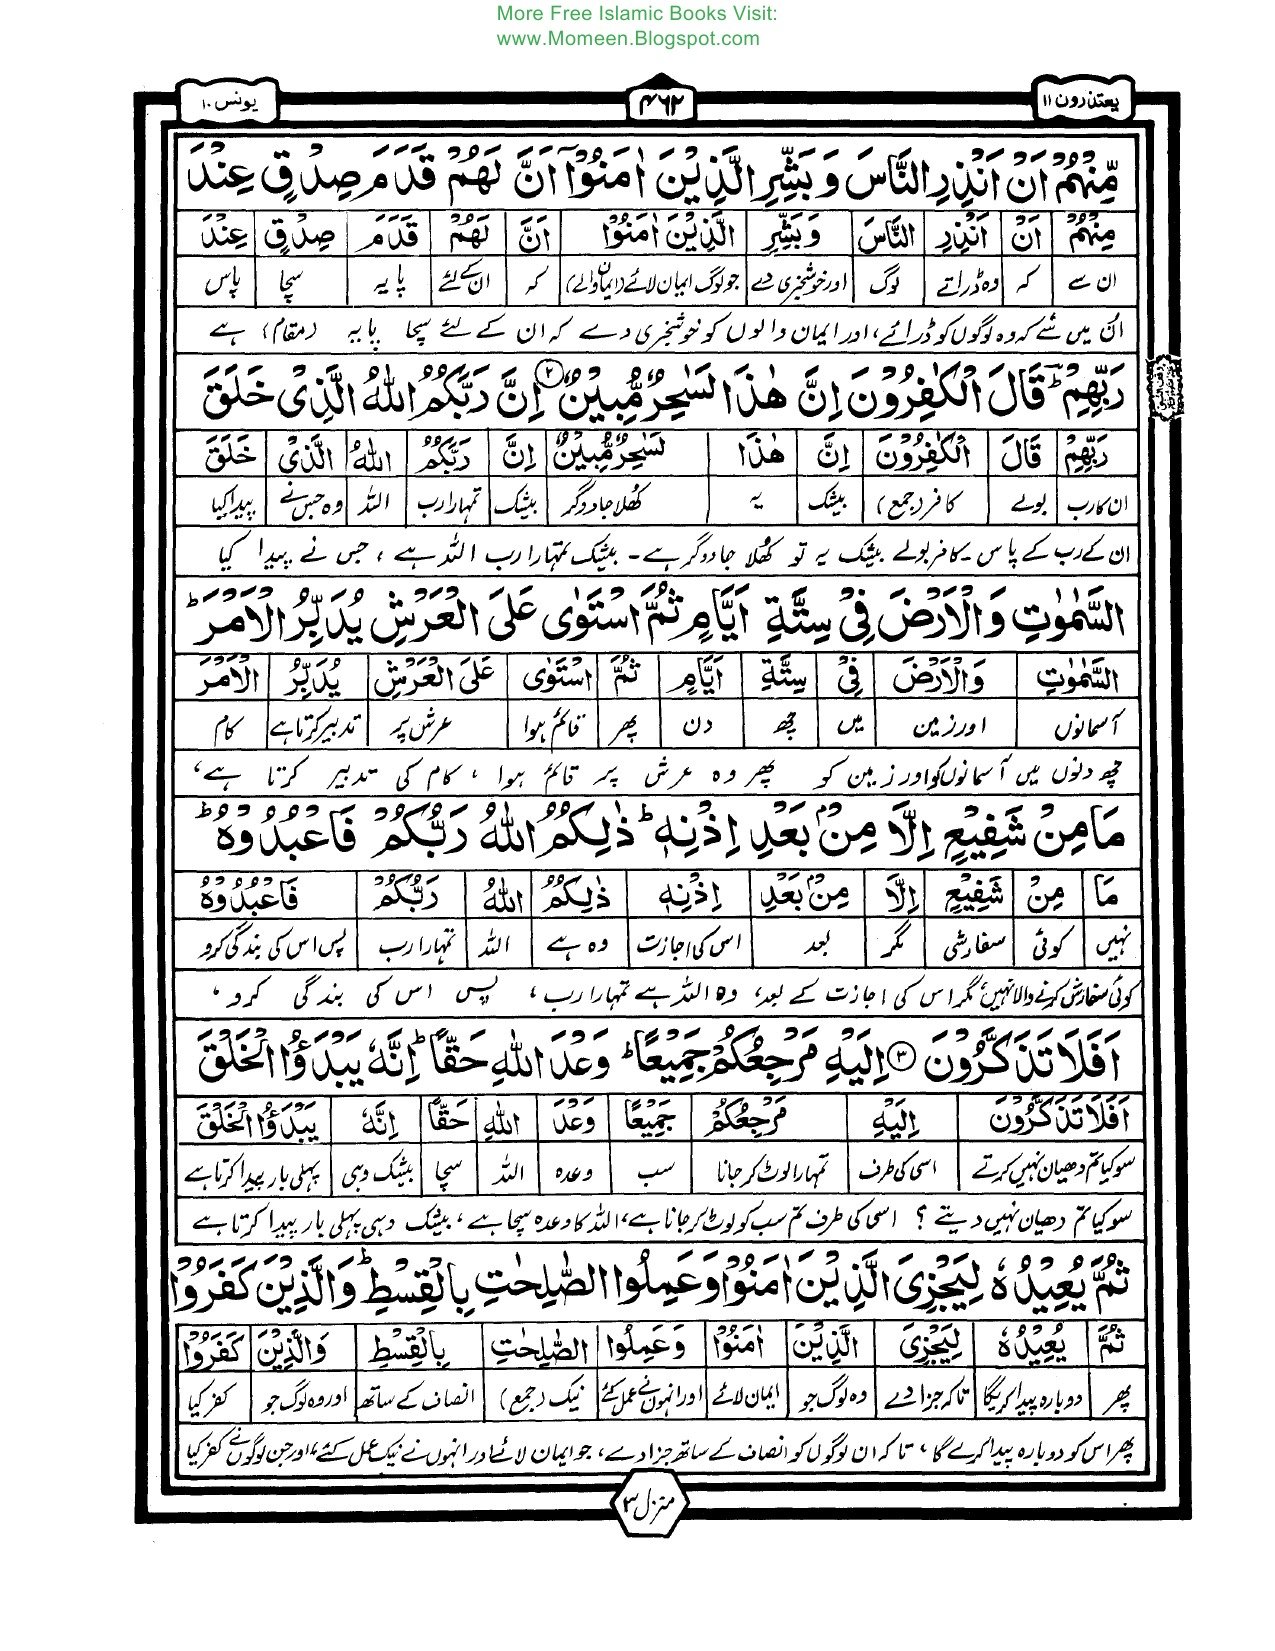 More Free Islamic Books Visit:
www.Momeen.Blogspot.com
یعتذرون ۱۱ ۴۶۲ یونس ۱۰
مِّنْهُمْ اَنْ اَنْذِرِ النَّاسَ وَبَشِّرِ الَّذِيْنَ اٰمَنُوْٓا اَنَّ لَهُمْ قَدَمَ صِدْقٍ عِنْدَ
مِنْهُمْ اَنْ اَنْذِرِ النَّاسَ وَبَشِّرِ الَّذِيْنَ اٰمَنُوْا اَنَّ لَهُمْ قَدَمَ صِدْقٍ عِنْدَ
ان سے کہ وہ ڈراتے لوگ اور خوشخبری دے جو لوگ ایمان لائے (ایمان والے) کہ ان کے لئے پایہ سچا پاس
ان میں سے کہ وہ لوگوں کو ڈرائے، اور ایمان والوں کو خوشخبری دے کہ ان کے لئے سچا پایہ (مقام) ہے
رَبِّهِمْ ؕ قَالَ الْكٰفِرُوْنَ اِنَّ هٰذَا لَسٰحِرٌ مُّبِيْنٌ ۲ اِنَّ رَبَّكُمُ اللّٰهُ الَّذِيْ خَلَقَ
رَبِّهِمْ قَالَ الْكٰفِرُوْنَ اِنَّ هٰذَا لَسٰحِرٌ مُّبِيْنٌ اِنَّ رَبَّكُمُ اللّٰهُ الَّذِيْ خَلَقَ
ان کا رب بولے کافر (جمع) بیشک یہ کھلا جادوگر بیشک تمہارا رب اللہ وہ جس نے پیدا کیا
ان کے رب کے پاس ۔ کافر بولے بیشک یہ تو کھلا جادوگر ہے ۔ بیشک تمہارا رب اللہ ہے ، جس نے پیدا کیا
السَّمٰوٰتِ وَالْاَرْضَ فِيْ سِتَّةِ اَيَّامٍ ثُمَّ اسْتَوٰى عَلَى الْعَرْشِ يُدَبِّرُ الْاَمْرَ ؕ
السَّمٰوٰتِ وَالْاَرْضَ فِيْ سِتَّةِ اَيَّامٍ ثُمَّ اسْتَوٰى عَلَى الْعَرْشِ يُدَبِّرُ الْاَمْرَ
آسمانوں اور زمین میں چھ دن پھر قائم ہوا عرش پر تدبیر کرتا ہے کام
چھ دنوں میں آسمانوں کو اور زمین کو پھر وہ عرش پر قائم ہوا ، کام کی تدبیر کرتا ہے،
مَا مِنْ شَفِيْعٍ اِلَّا مِنْۢ بَعْدِ اِذْنِهٖ ؕ ذٰلِكُمُ اللّٰهُ رَبُّكُمْ فَاعْبُدُوْهُ ؕ
مَا مِنْ شَفِيْعٍ اِلَّا مِنْۢ بَعْدِ اِذْنِهٖ ذٰلِكُمُ اللّٰهُ رَبُّكُمْ فَاعْبُدُوْهُ
نہیں کوئی سفارشی مگر بعد اس کی اجازت وہ ہے اللہ تمہارا رب پس اس کی بندگی کرو
کوئی سفارش کرنے والا نہیں، مگر اس کی اجازت کے بعد، وہ اللہ ہے تمہارا رب ، پس اس کی بندگی کرو ،
اَفَلَا تَذَكَّرُوْنَ ۳ اِلَيْهِ مَرْجِعُكُمْ جَمِيْعًا ؕ وَعْدَ اللّٰهِ حَقًّا ؕ اِنَّهٗ يَبْدَؤُا الْخَلْقَ
اَفَلَا تَذَكَّرُوْنَ اِلَيْهِ مَرْجِعُكُمْ جَمِيْعًا وَعْدَ اللّٰهِ حَقًّا اِنَّهٗ يَبْدَؤُا الْخَلْقَ
سو کیا تم دھیان نہیں کرتے اسی کی طرف تمہارا لوٹ کر جانا سب وعدہ اللہ سچا بیشک وہی پہلی بار پیدا کرتا ہے
سو کیا تم دھیان نہیں دیتے ؟ اسی کی طرف تم سب کو لوٹ کر جانا ہے، اللہ کا وعدہ سچا ہے ، بیشک وہی پہلی بار پیدا کرتا ہے
ثُمَّ يُعِيْدُهٗ لِيَجْزِيَ الَّذِيْنَ اٰمَنُوْا وَعَمِلُوا الصّٰلِحٰتِ بِالْقِسْطِ ؕ وَالَّذِيْنَ كَفَرُوْا
ثُمَّ يُعِيْدُهٗ لِيَجْزِيَ الَّذِيْنَ اٰمَنُوْا وَعَمِلُوا الصّٰلِحٰتِ بِالْقِسْطِ وَالَّذِيْنَ كَفَرُوْا
پھر دوبارہ پیدا کریگا تاکہ جزا دے وہ لوگ جو ایمان لائے اور انہوں نے عمل کئے نیک (جمع) انصاف کے ساتھ اور وہ لوگ جو کفر کیا
پھر اس کو دوبارہ پیدا کرے گا ، تاکہ ان لوگوں کو انصاف کے ساتھ جزا دے، جو ایمان لائے اور انہوں نے نیک عمل کئے، اور جن لوگوں نے کفر کیا
منزل ۳